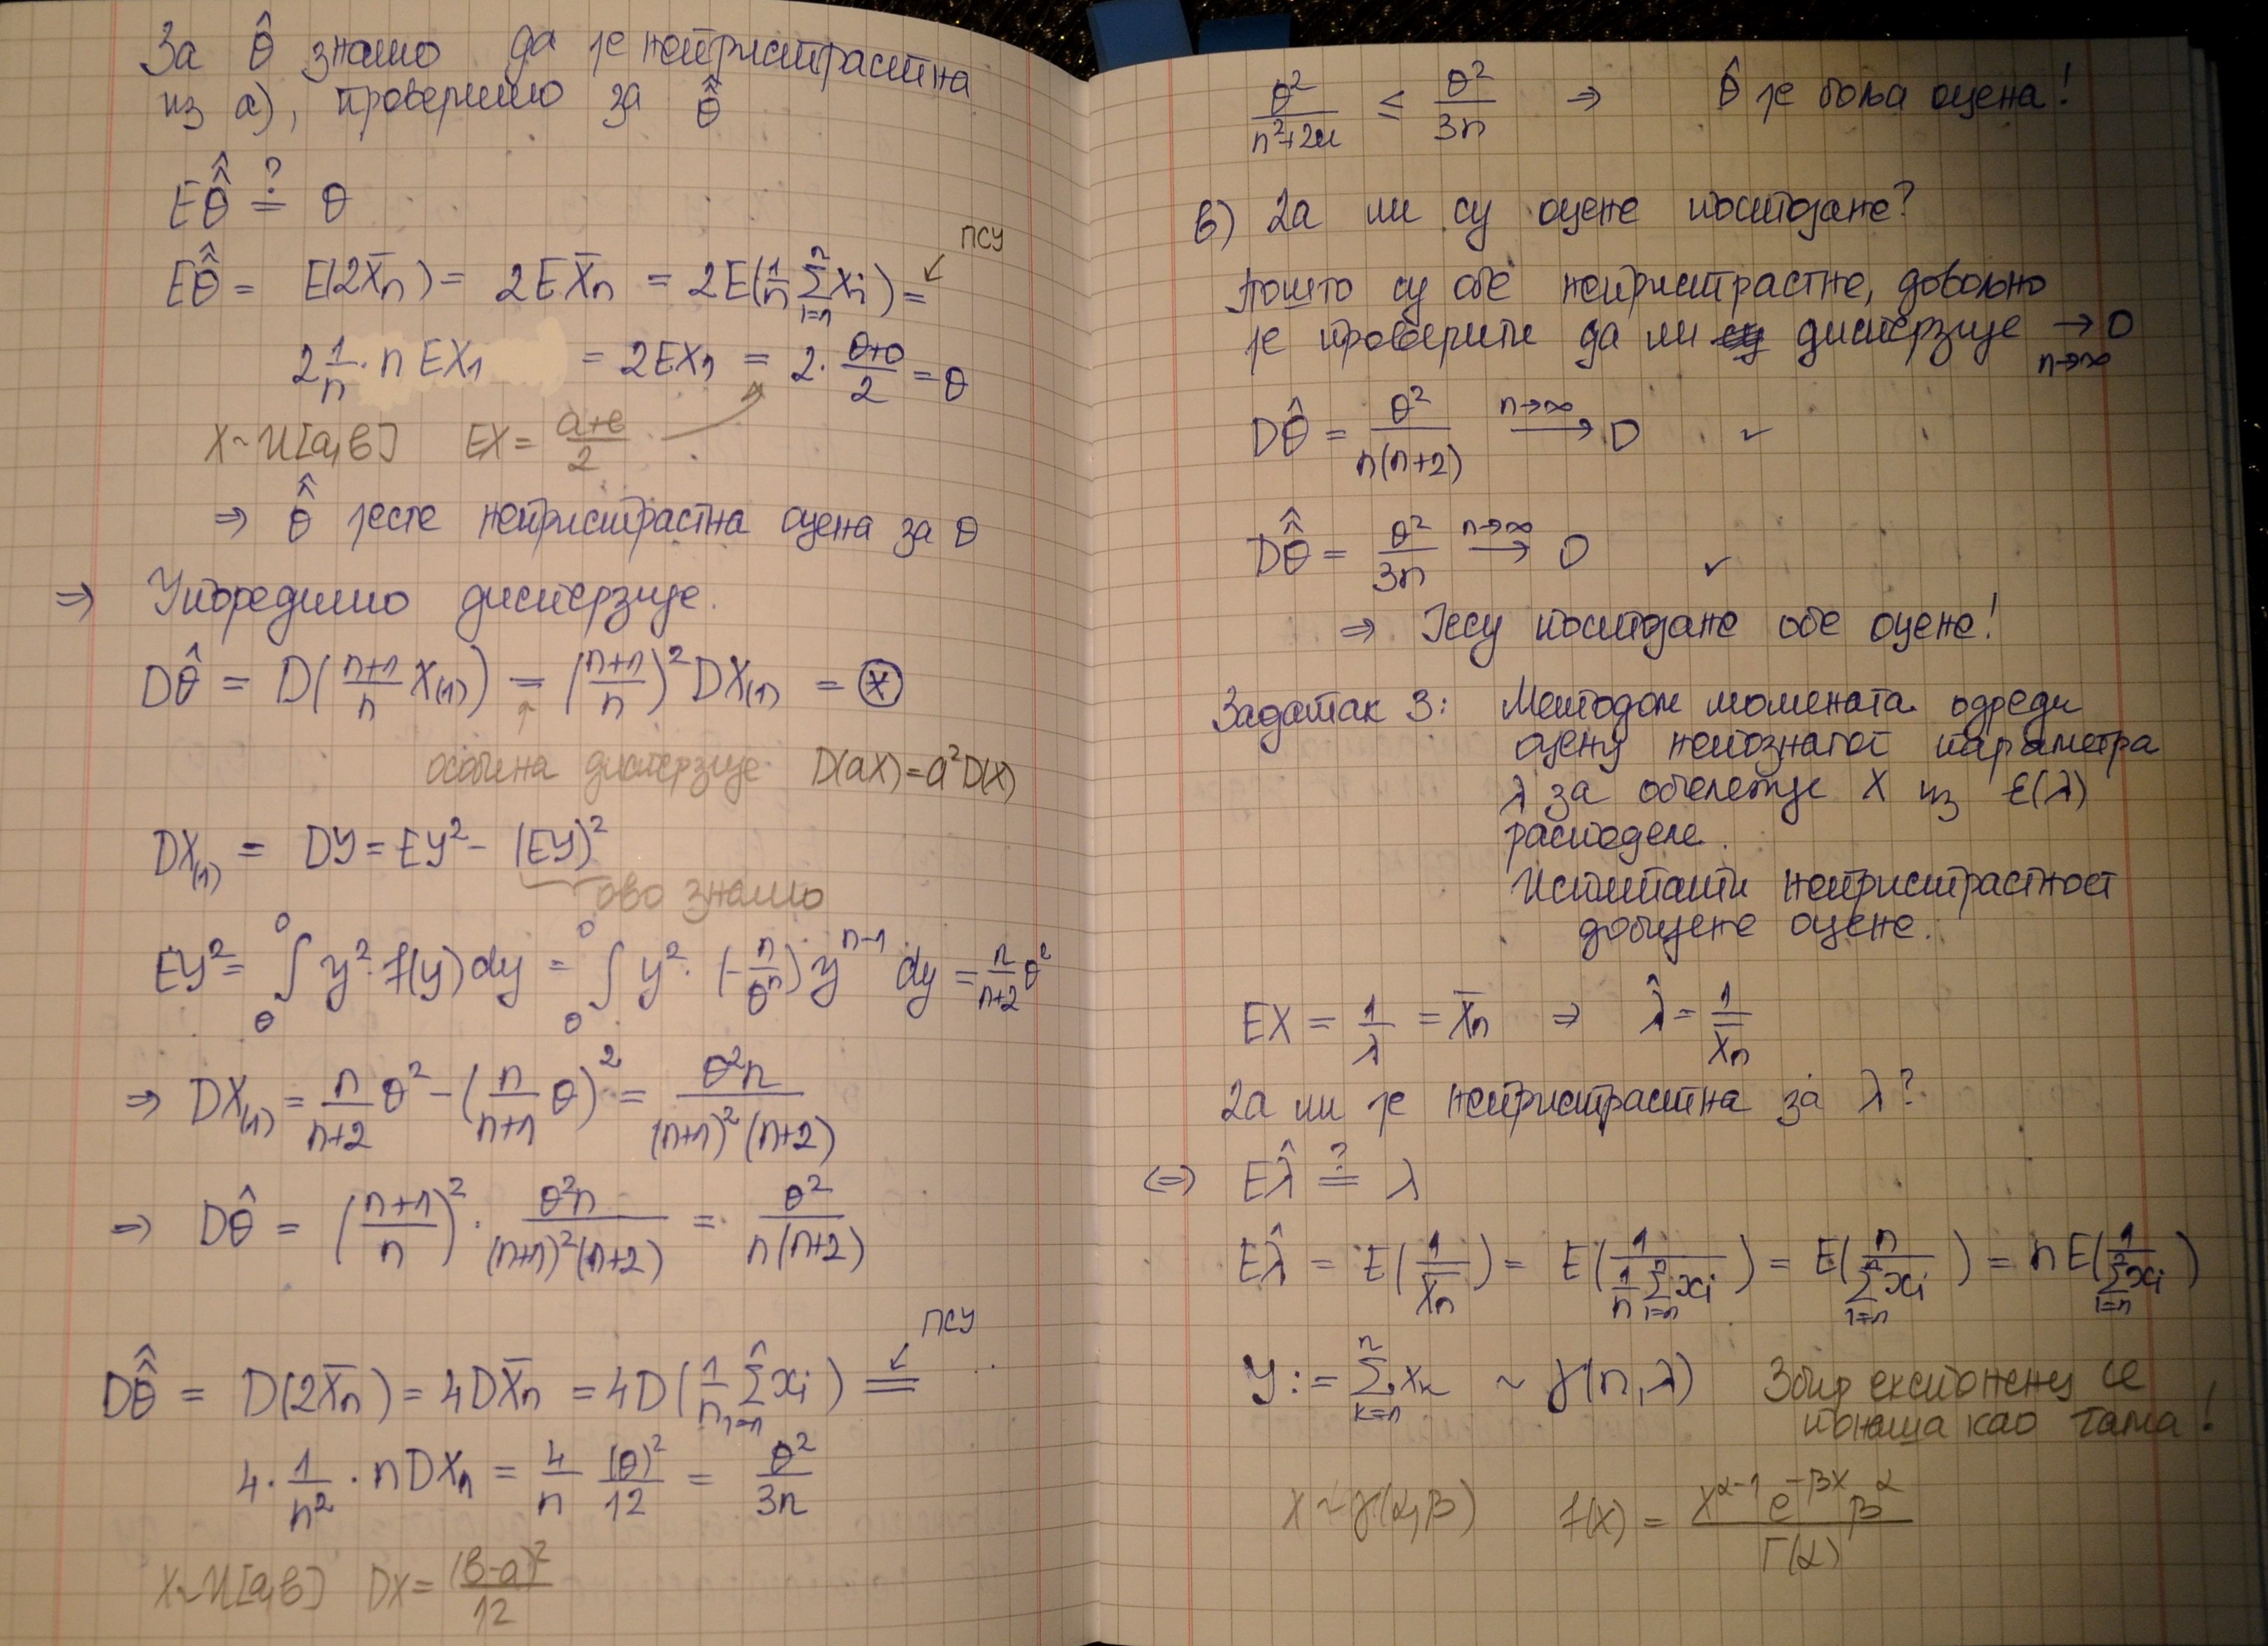 За θ̂ знамо да је непристрастна
из а), проверимо за θ̂̂
Eθ̂̂ ≟ θ
ПСУ
Eθ̂̂ = E(2X̄n) = 2EX̄n = 2E(1/n Σ_{i=1}^{n} Xi) =
2 1/n · n EX1 = 2EX1 = 2 · (θ+0)/2 = θ
X~U[a,b] EX = (a+b)/2
⇒ θ̂̂ јесте непристрастна оцена за θ
⇒ Упоредимо дисперзије.
Dθ̂ = D((n+1)/n X(1)) = ((n+1)/n)² DX(1) = (*)
особина дисперзије D(aX) = a²D(X)
DX(1) = DY = EY² - (EY)²
ово знамо
EY² = ∫_θ^0 y² · f(y) dy = ∫_θ^0 y² · (-n/θⁿ) y^{n-1} dy = n/(n+2) θ²
⇒ DX(1) = n/(n+2) θ² - (n/(n+1) θ)² = θ²n/((n+1)²(n+2))
⇒ Dθ̂ = ((n+1)/n)² · θ²n/((n+1)²(n+2)) = θ²/(n(n+2))
ПСУ
Dθ̂̂ = D(2X̄n) = 4DX̄n = 4D(1/n Σ_{i=1}^{n} Xi) =
4 · 1/n² · n DX1 = 4/n (θ)²/12 = θ²/3n
X~U[a,b] DX = (b-a)²/12
θ²/(n²+2n) ≤ θ²/3n ⇒ θ̂ је боља оцена!
в) Да ли су оцене постојане?
Пошто су обе непристрастне, довољно
је проверити да ли дисперзије → 0
n→∞
Dθ̂ = θ²/(n(n+2)) →(n→∞) 0 ✓
Dθ̂̂ = θ²/3n →(n→∞) 0 ✓
⇒ Јесу постојане обе оцене!
Задатак 3: Методом момената одреди
оцену непознатог параметра
λ за обележје X из ε(λ)
расподеле.
Испитати непристрастност
добијене оцене.
EX = 1/λ = X̄n ⇒ λ̂ = 1/X̄n
Да ли је непристрастна за λ?
(⇒) Eλ̂ ≟ λ
Eλ̂ = E(1/X̄n) = E(1/(1/n Σ_{i=1}^{n} Xi)) = E(n/Σ_{i=1}^{n} Xi) = n E(1/Σ_{i=1}^{n} Xi)
Y := Σ_{k=1}^{n} Xk ~ γ(n,λ) Збир експоненц се
понаша као гама!
X~γ(α,β) f(x) = x^{α-1} e^{-βx} β^α / Γ(α)